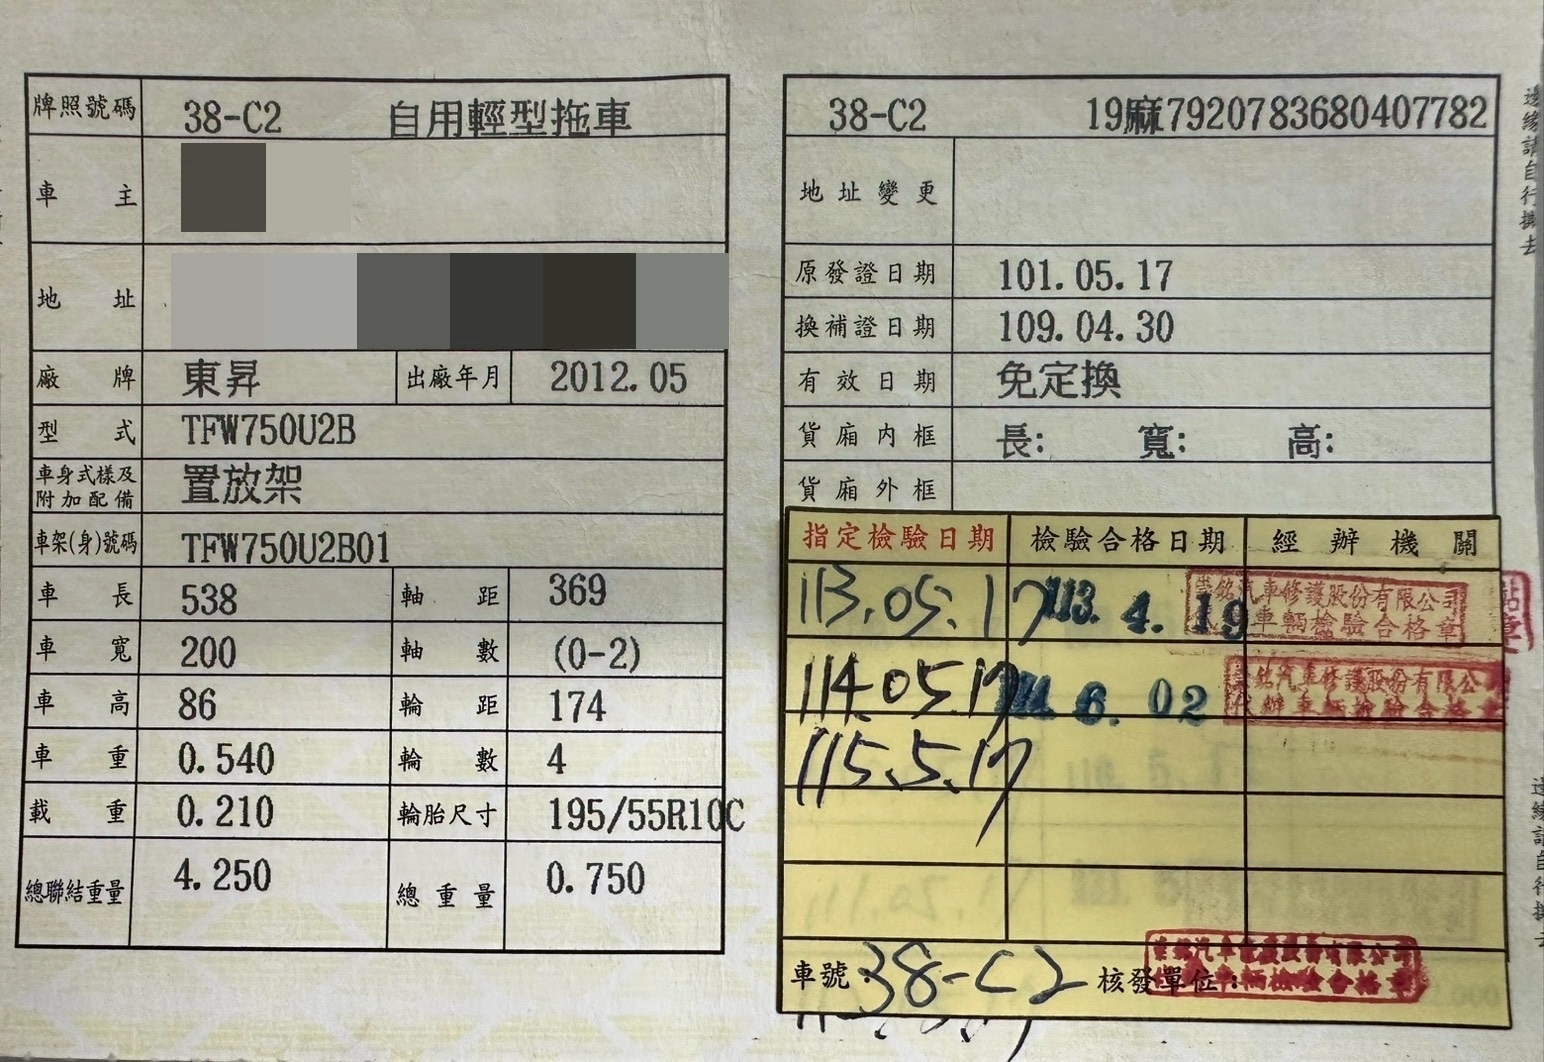 牌照號碼 38-C2 自用輕型拖車
車主
地址
廠牌 東昇 出廠年月 2012.05
型式 TFW750U2B
車身式樣及附加配備 置放架
車架(身)號碼 TFW750U2B01
車長 538 軸距 369
車寬 200 軸數 (0-2)
車高 86 輪距 174
車重 0.540 輪數 4
載重 0.210 輪胎尺寸 195/55R10C
總聯結重量 4.250 總重量 0.750
38-C2 19麻7920783680407782
地址變更
原發證日期 101.05.17
換補證日期 109.04.30
有效日期 免定換
貨廂內框 長: 寬: 高:
貨廂外框
指定檢驗日期 檢驗合格日期 經辦機關
113.05.17 113.4.19 崇銘汽車修護股份有限公司
車輛檢驗合格章
114.05.17 6.02 崇銘汽車修護股份有限公
代辦車輛檢驗合格章
115.5.17
車號:38-C2 核發單位:
崇銘汽車修護股份有限公司
車輛檢驗合格章
邊緣請自行撕去